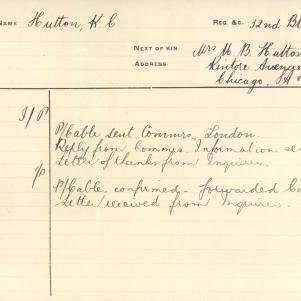 NAME Hutton, K C REG. &C. 32nd B
NEXT OF KIN Mrs M B Hutton
ADDRESS Kintore Avenue
Chicago, SA
I/P
P/Cable sent Commrs. London.
Reply from Commrs. Information se
Letter of thanks from Inquirer.
P/Cable confirmed - forwarded
Letter received from Inquirer.